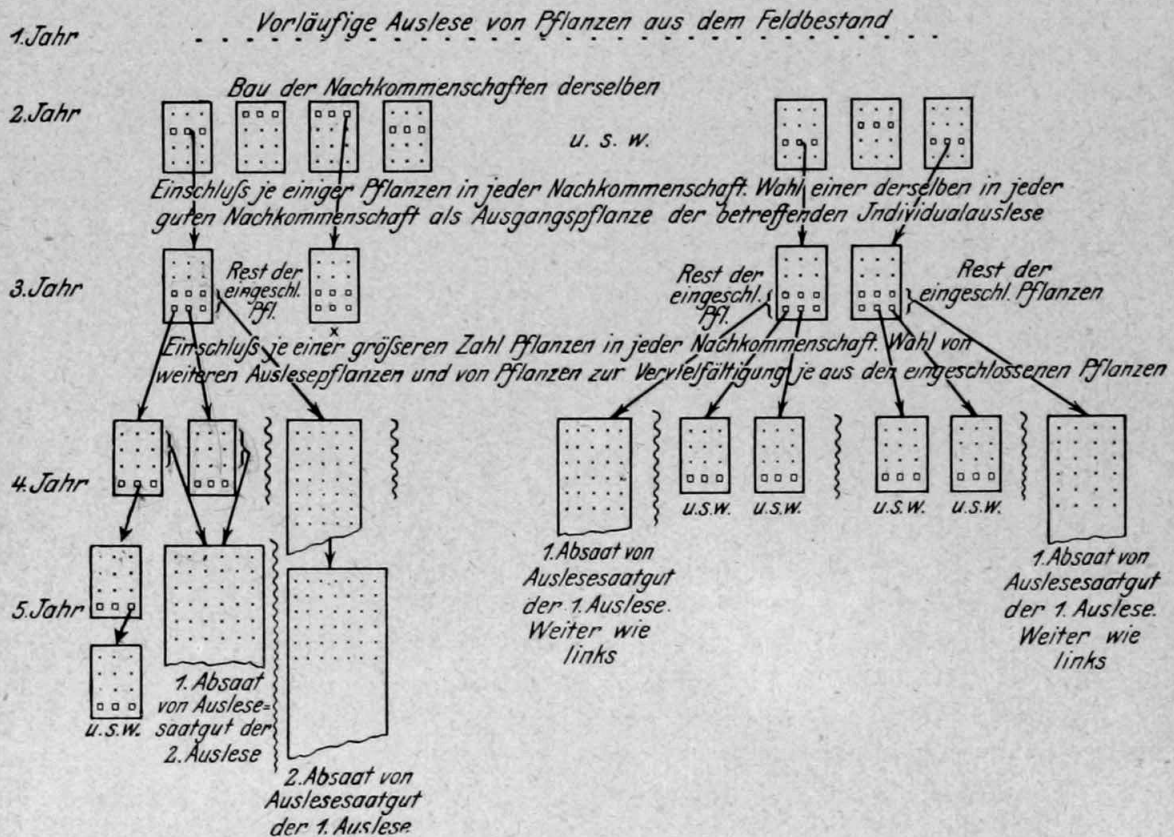 1. Jahr
Vorläufige Auslese von Pflanzen aus dem Feldbestand
Bau der Nachkommenschaften derselben
2. Jahr
u. s. w.
Einschluß je einiger Pflanzen in jeder Nachkommenschaft. Wahl einer derselben in jeder
guten Nachkommenschaft als Ausgangspflanze der betreffenden Individualauslese
3. Jahr
Rest der
eingeschl.
Pfl.
x
Rest der
eingeschl.
Pfl.
Rest der
eingeschl. Pflanzen
Einschluß je einer größeren Zahl Pflanzen in jeder Nachkommenschaft. Wahl von
weiteren Auslesepflanzen und von Pflanzen zur Vervielfältigung je aus den eingeschlossenen Pflanzen
4. Jahr
u.s.w.
u.s.w.
u.s.w.
u.s.w.
5. Jahr
u.s.w.
1. Absaat
von Auslese=
saatgut der
2. Auslese
2. Absaat von
Auslesesaatgut
der 1. Auslese
1. Absaat von
Auslesesaatgut
der 1. Auslese.
Weiter wie
links
1. Absaat von
Auslesesaatgut
der 1. Auslese.
Weiter wie
links